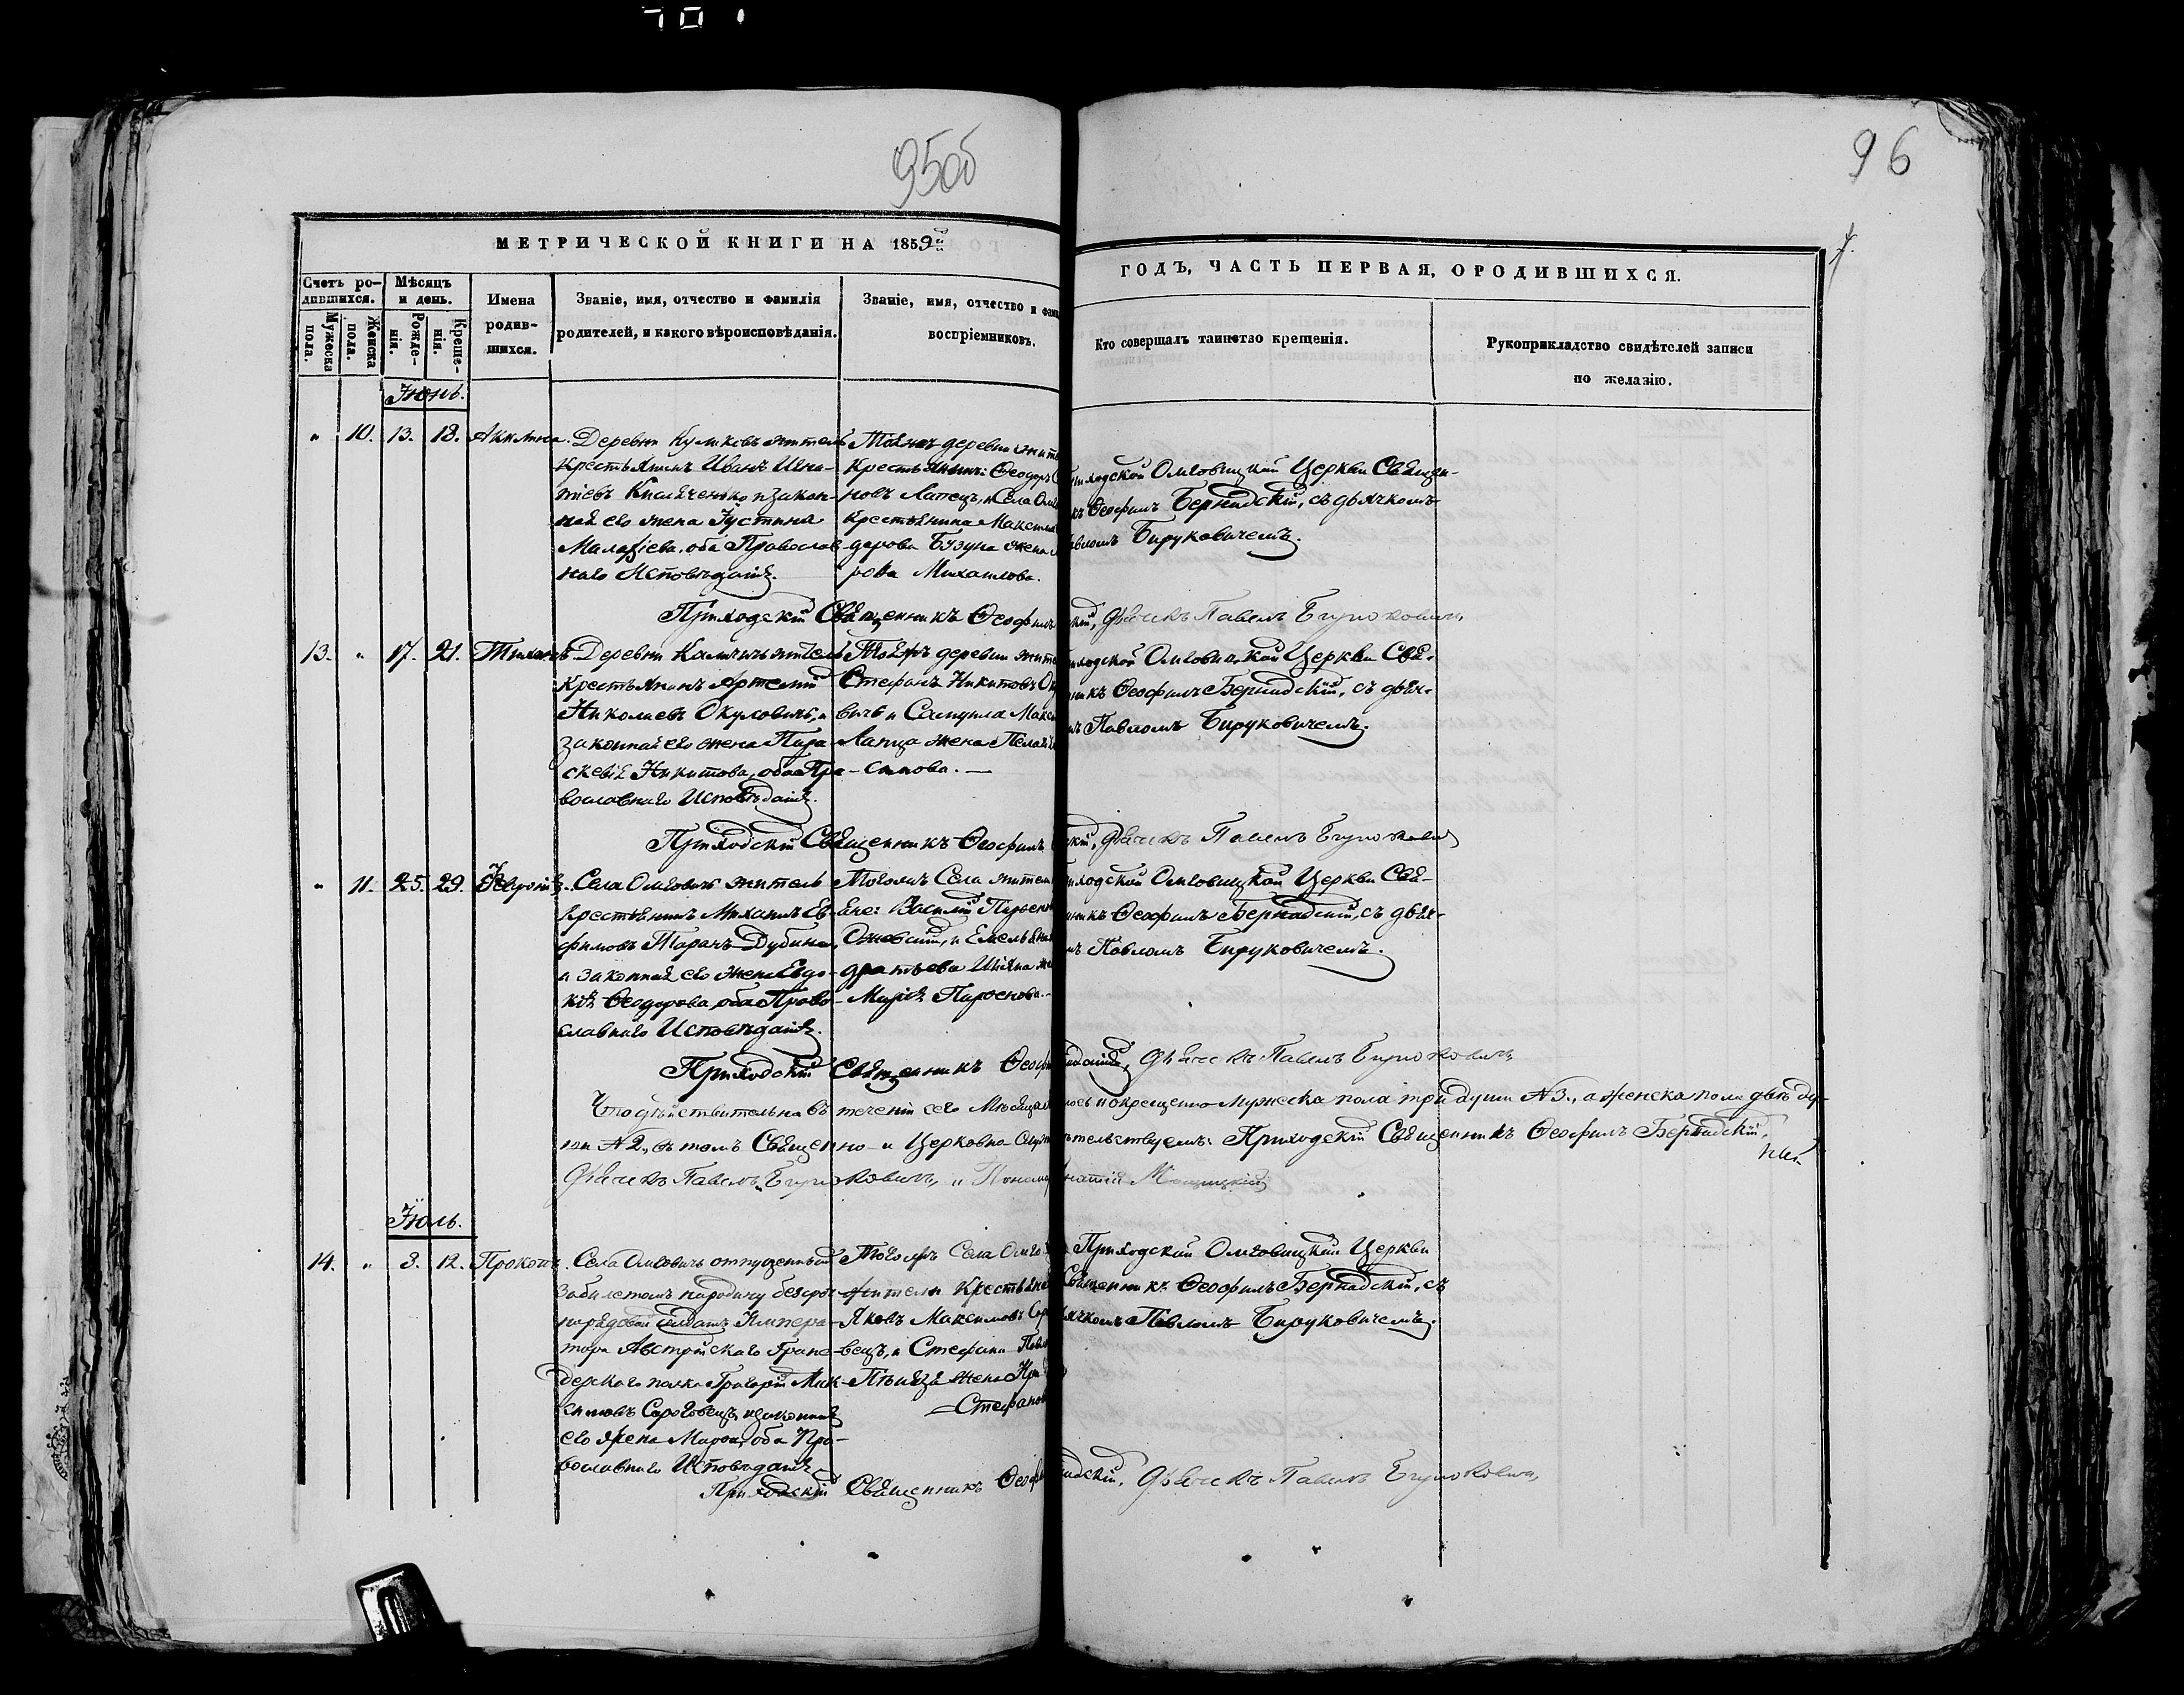 701
95об
96
7.
МЕТРИЧЕСКОЙ КНИГИ НА 1859й
ГОДЪ, ЧАСТЬ ПЕРВАЯ, О РОДИВШИХСЯ.
Счетъ ро-
дившихся.
Мужеска
пола.
Женска
пола.
Мѣсяцъ
и день.
Рожде-
нія.
Креще-
нія.
Имена
родив-
шихся.
Званіе, имя, отчество и фамилія
родителей, и какого вѣроисповѣданія.
Званіе, имя, отчество и фами
воспріемниковъ.
Кто совершалъ таинство крещенія.
Рукоприкладство свидѣтелей записи
по желанію.
Іюнь.
" 10. 13. 18. Акилина.
Деревни Куликовъ житель
Крестьянинъ Иванъ Игна-
тіевъ и закон-
ная его жена Іустина
оба Православ-
наго Исповѣданія.
Тояжъ деревни жите
Крестьянинъ: Ѳеодоръ
новъ Лапецъ, и Села
Крестьянина Максима
дорова Бузуна жена
рова Михаилова.
Омговицкой Церкви Священ-
Ѳеофилъ Бернадскій, съ дьячкомъ
Бируковичемъ.
Приходскій Священникъ Ѳеофилъ
скій, Дьячекъ Павелъ Бируковичъ
13. " 17. 21. Тихонъ
Деревни житель
Крестьянинъ Артемій
Николаевъ Окуловичъ, и
законная его жена Пара-
скевія Никитова, оба Пра-
вославнаго Исповѣданія.
Тояжъ деревни жите
Стефанъ Никитовъ Оку
вичъ и Самуила Макси
Лапца жена Пелагія
симова. —
иходской Омговицкой Церкви Свя-
никъ Ѳеофилъ Бернадскій, съ дьяч-
Павломъ Бируковичемъ.
Приходскій Священникъ Ѳеофилъ
скій, Дьячекъ Павелъ Бируковичъ
" 11. 25. 29. Февронія.
Села Омговичъ житель
Крестьянинъ Михаилъ Ев-
фимовъ Таранъ-Дубина,
и законная его жена Евдо-
кія Ѳеодорова, оба Право-
славнаго Исповѣданія.
Тогожъ Села жители
Василій Парѳено
и Емельяна
дратьева жена
Марія Парѳенова.
иходской Омговицкой Церкви Свя-
никъ Ѳеофилъ Бернадскій, съ дьяч-
Павломъ Бируковичемъ.
Приходскій Священникъ Ѳеофи
надскій, Дьячекъ Павелъ Бируковичъ
Что дѣйствительно въ теченіи сего Мѣсяца лось и окрещено мужеска пола три души N 3., а женска пола двѣ ду-
ши N 2., въ томъ Священно- и Церковно-Служ тельствуемъ: Приходскій Священникъ Ѳеофилъ Бернадскій,
Дьячекъ Павелъ Бируковичъ, и Понома
Іюль.
14. " 3. 12. Прокопъ.
Села Омговичъ отпущенный
за билетомъ народину безсроч-
но рядовой солдатъ Импера-
тора Австрійскаго Грена-
дерскаго полка Григорій Мак-
симовъ Сороговецъ, и законная
его жена Марѳа, оба Пра-
вославнаго Исповѣданія.
Тогожъ Села Омго
жители Крестьяне
Яковъ Максимовъ Соро
вецъ, и Стефана
жена
Стефанов
Приходской Омговицкой Церкви
Священникъ Ѳеофилъ Бернадскій, съ
ячкомъ Павломъ Бируковичемъ.
Приходскій Священникъ Ѳеофи
надскій, Дьячекъ Павелъ Бируковичъ